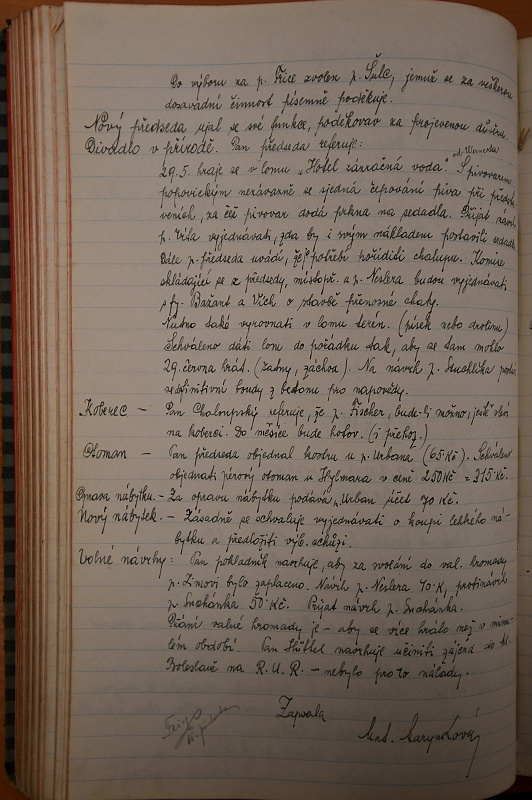 Do výboru za p. Frice zvolen p. Šulc, jemuž se za veškerou
dosavadní činnost písemně poděkuje.
Nový předseda ujal se své funkce, poděkovav za projevenou důvěru.
Divadlo v přírodě. Pan předseda referuje:
29.5. hraje se v lomu „Hotel zázračná voda". S pivovarem
popovickým nezávazně se sjedná čepování piva při předsta-
veních, za čež pivovar dodá prkna na sedadla. Přijat návrh
p. vyjednávati, zda by i svým nákladem postavili sedadla
Dále p. předseda uvádí, že potřebí poříditi chalupu. Komise
skládající se z předsedy, místopř. a p. Neslera budou vyjednávati
s fy. Bažant a Vlch o stavbě přenosné chaty.
Nutno také vyrovnati v lomu terén. (písek nebo drolinu)
Schváleno dáti lom do pořádku tak, aby se tam mohlo
29. června hrát. (žádny, záchod). Na návrh p.
sedefinitivní boudy z betonu pro nápovědy.
Koberec – Pan Cholonpský referuje, že p. Fischer, bude-li možno, ještě
na koberci. Do měsíce bude hotov. (i přehoz.)
Otoman – Pan předseda objednal kostru u p. Urbana (65 Kč). Schváleno
objednati pérový otoman u Hylmara v ceně 250 Kč – 315 Kč.
Oprava nábytku. – Za opravu nábytku podává p. Urban účet 70 Kč.
Nový nábytek. – Zásadně se schvaluje vyjednávati o koupi celkého ná-
bytku a předložiti výb. schůzi.
Volné návrhy: Pan pokladník navrhuje, aby za svolání do val. hromady
p. Zimovi bylo zaplaceno. Návrh p. Neslera 70 K, protinávrh
p. Snohánka 50 Kč. Přijat návrh p. Snohánka.
Přání valné hromady je – aby se více hrálo než v minu-
lém období. Pan Hüttel navrhuje učiniti zájezd do Ml.
Boleslavě na R. U. R. – nebylo pro to nálady.
Zapsala